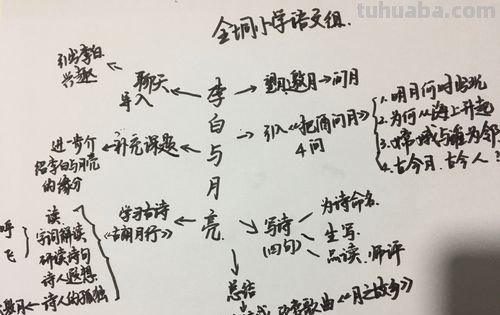 tuhuaba.com
小学语文组.
引出李白
兴趣
聊天
导入
李白与月亮
望月、邀月→问月
引入《把酒问月》
4问
1.明月何时出现
2.为何从海上升起
3.嫦娥与谁为邻
4.古今月、古今人?
补充课题
进一步介
绍李白与月亮
的缘分
学习古诗
《古朗月行》
读、
字词解读
研读诗句
诗人遐想
诗人的孤独
呼
飞
邀月
写诗
(四句)
为诗命名
生写
品读、师评
总结
歌曲《月之故乡》